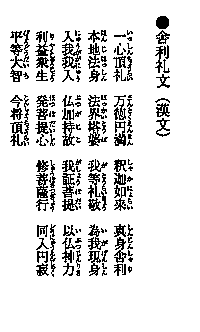 ●舎利礼文（漢文）
一心頂礼　万徳円満　釈迦如来　真身舎利
本地法身　法界塔婆　我等礼敬　為我現身
入我我入　仏加持故　我証菩提　以仏神力
利益衆生　発菩提心　修菩薩行　同入円寂
平等大智　今将頂礼